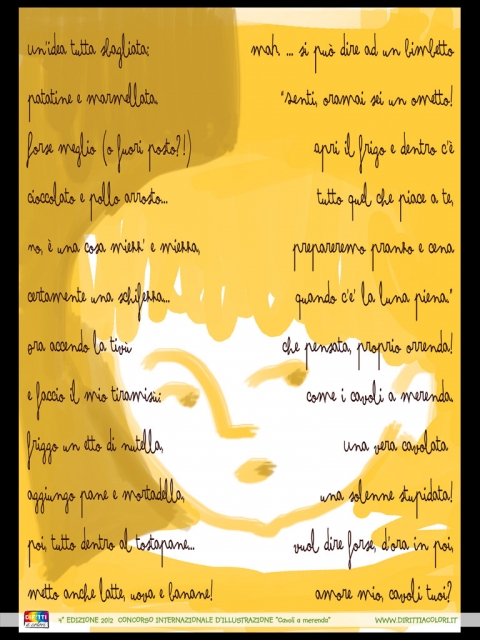 un'idea tutta sbagliata:
patatine e marmellata.
forse meglio (o fuori posto?!)
cioccolato e pollo arrosto...
no, è una cosa miezz' e miezza,
certamente una schifezza...
ora accendo la tivù
e faccio il mio tiramisù:
friggo un etto di nutella,
aggiungo pane e mortadella,
poi, tutto dentro al tostapane...
metto anche latte, uova e banane!
mah, ... si può dire ad un bimbetto
"senti, oramai sei un ometto!
apri il frigo e dentro c'è
tutto quel che piace a te,
prepareremo pranzo e cena
quando c'e' la luna piena."
che pensata, proprio orrenda!
come i cavoli a merenda.
una vera cavolata
una solenne stupidata!
vuol dire forse, d'ora in poi,
amore mio, cavoli tuoi?
DIRITTI a colori
4° EDIZIONE 2012 CONCORSO INTERNAZIONALE D'ILLUSTRAZIONE "Cavoli a merenda"
WWW.DIRITTIACOLORI.IT